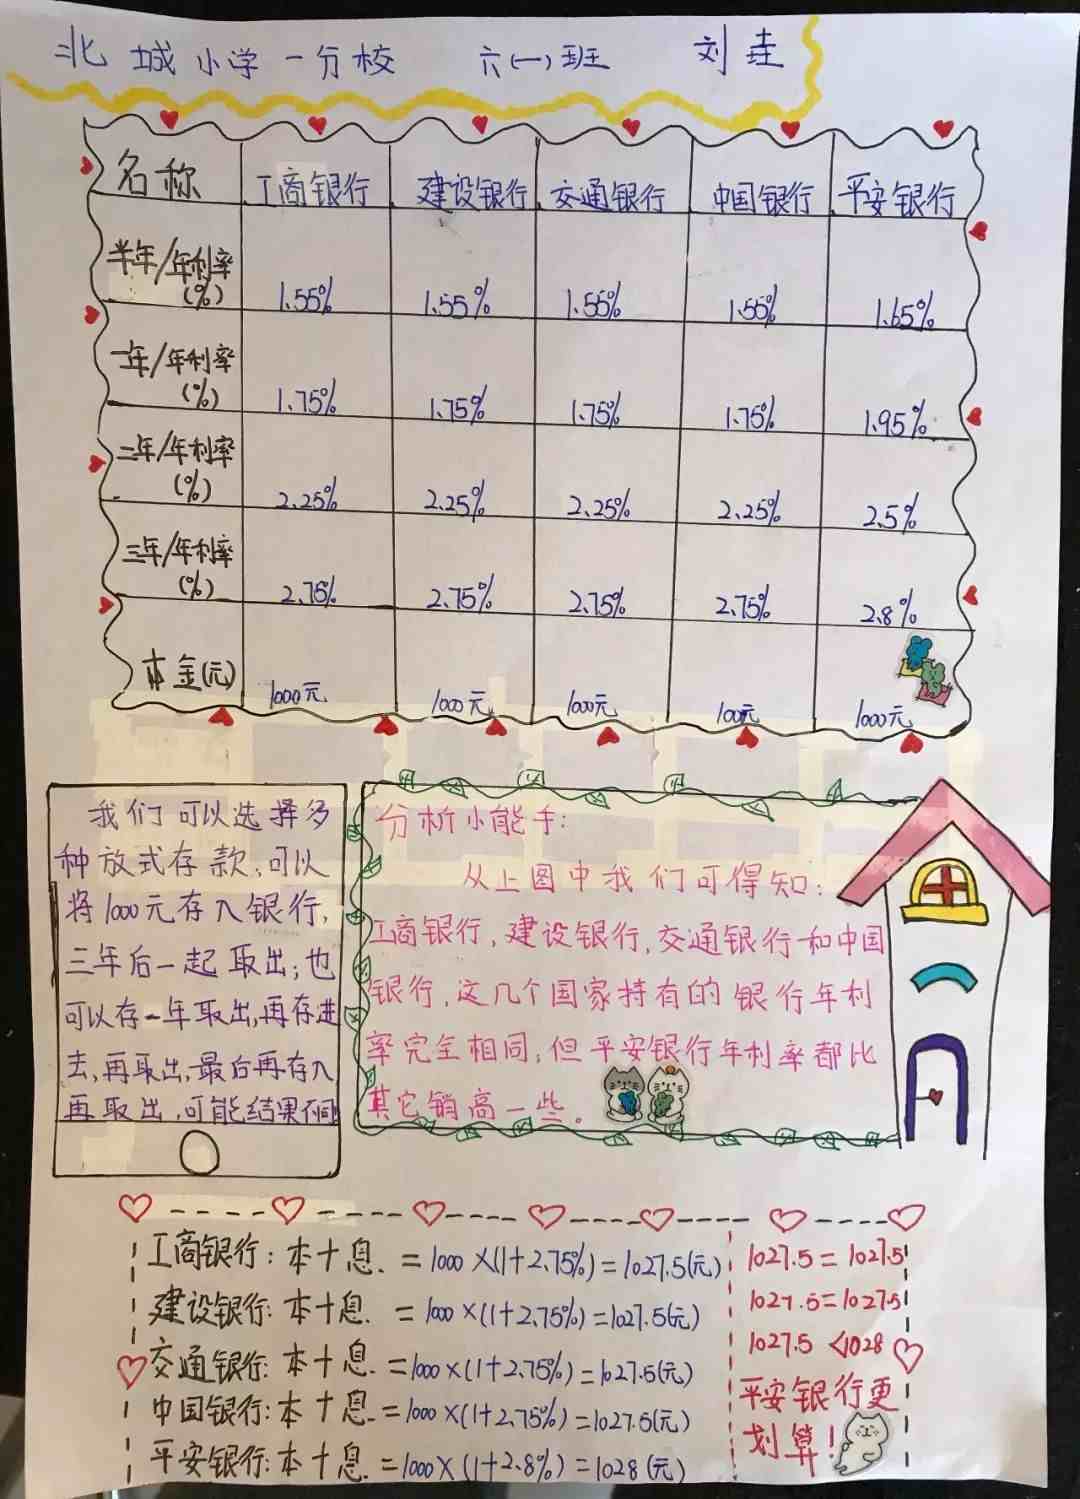 北城小学一分校 六(一)班 刘垚
名称 工商银行 建设银行 交通银行 中国银行 平安银行
半年/年利率(%) 1.55% 1.55% 1.55% 1.55% 1.65%
一年/年利率(%) 1.75% 1.75% 1.75% 1.75% 1.95%
二年/年利率(%) 2.25% 2.25% 2.25% 2.25% 2.5%
三年/年利率(%) 2.75% 2.75% 2.75% 2.75% 2.8%
本金(元) 1000元 1000元 1000元 100元 1000元
我们可以选择多
种放式存款,可以
将1000元存入银行,
三年后一起取出;也
可以存一年取出,再存进
去,再取出,最后再存入
再取出,可能结果不同
分析小能手:
从上图中我们可得知:
工商银行,建设银行,交通银行和中国
银行,这几个国家持有的银行年利
率完全相同,但平安银行年利率都比
其它销高一些。
工商银行:本十息.=1000×(1+2.75%)=1027.5(元)
建设银行:本十息.=1000×(1+2.75%)=1027.5(元)
交通银行:本十息.=1000×(1+2.75%)=1027.5(元)
中国银行:本十息.=1000×(1+2.75%)=1027.5(元)
平安银行:本十息.=1000×(1+2.8%)=1028(元)
1027.5=1027.5
1027.5=1027.5
1027.5<1028
平安银行更
划算!